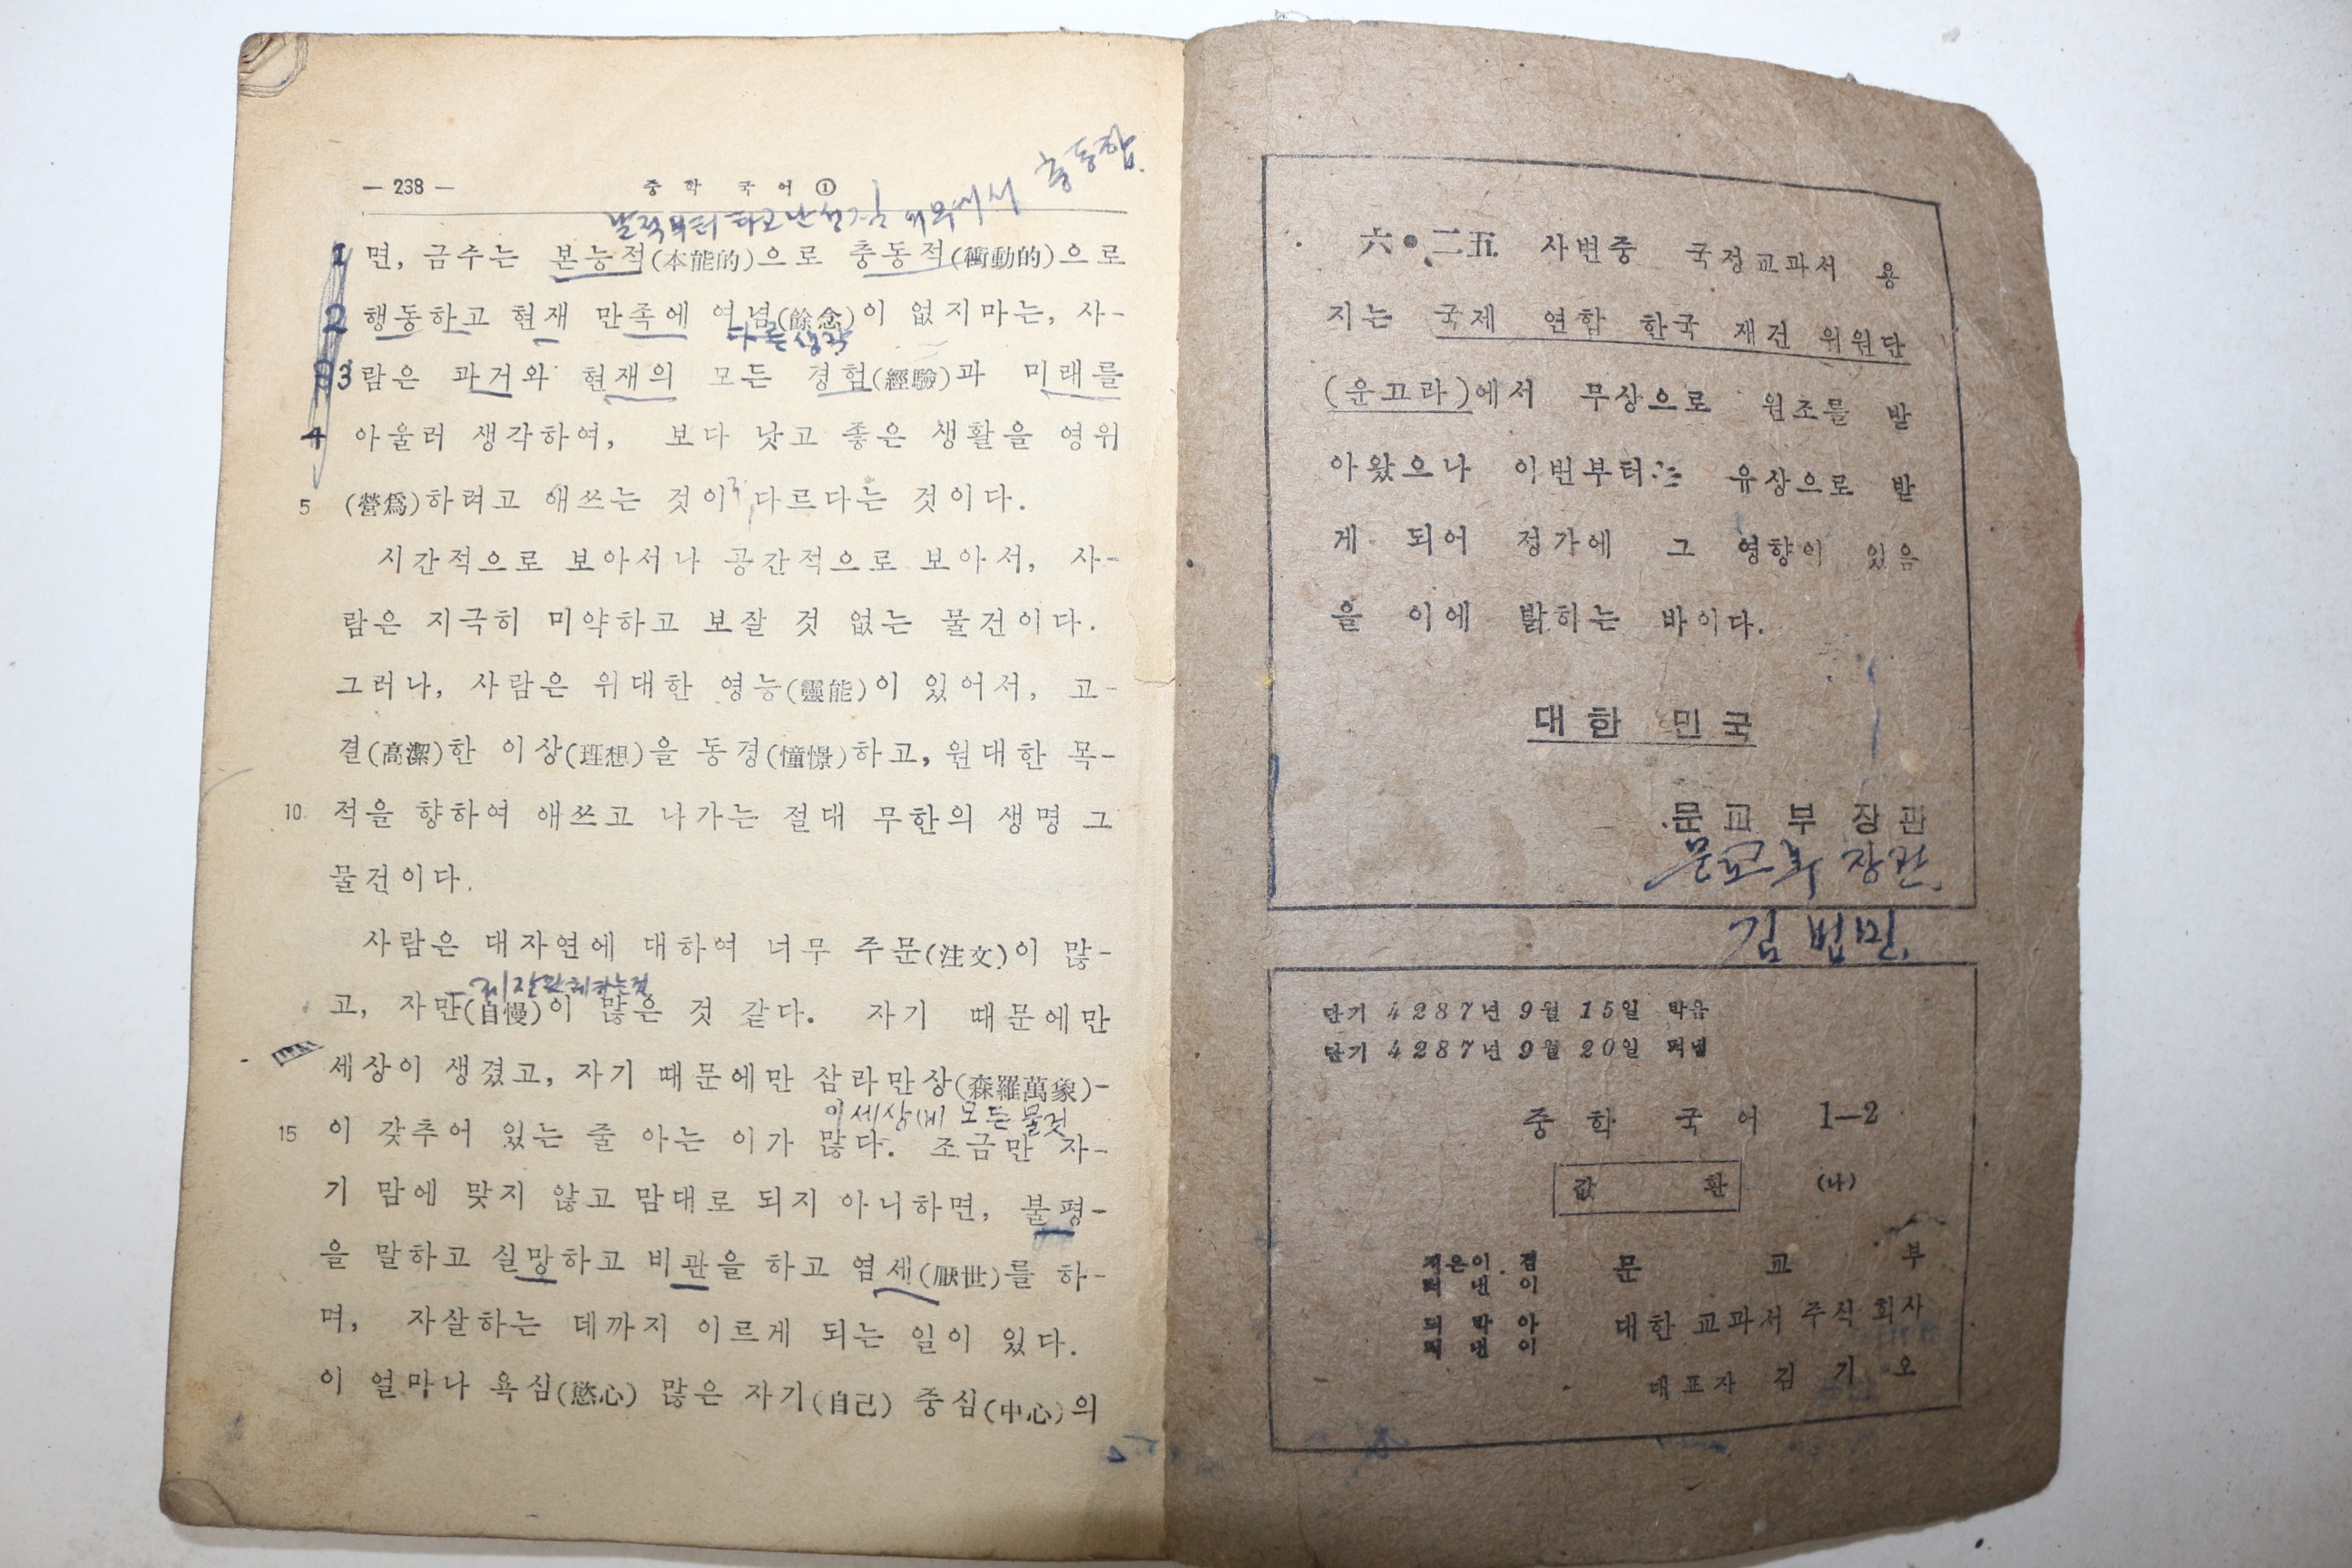 — 238 —
중학 국어 ①
충동함.
날적부터 타고난 성질 에서
1 면, 금수는 본능적(本能的)으로 충동적(衝動的)으로
2 행동하고 현재 만족에 여념(餘念)이 없지마는, 사-
다른생각
3 람은 과거와 현재의 모든 경험(經驗)과 미래를
4 아울러 생각하여, 보다 낫고 좋은 생활을 영위
5 (營爲)하려고 애쓰는 것이 다르다는 것이다.
시간적으로 보아서나 공간적으로 보아서, 사-
람은 지극히 미약하고 보잘 것 없는 물건이다.
그러나, 사람은 위대한 영능(靈能)이 있어서, 고-
결(高潔)한 이상(理想)을 동경(憧憬)하고, 원대한 목-
10 적을 향하여 애쓰고 나가는 절대 무한의 생명 그
물건이다.
사람은 대자연에 대하여 너무 주문(注文)이 많-
제잘난체하는것
고, 자만(自慢)이 많은 것 같다. 자기 때문에만
세상이 생겼고, 자기 때문에만 삼라만상(森羅萬象)-
이세상에 모든물것
15 이 갖추어 있는 줄 아는 이가 많다. 조금만 자-
기 맘에 맞지 않고 맘대로 되지 아니하면, 불평-
을 말하고 실망하고 비관을 하고 염세(厭世)를 하-
며, 자살하는 데까지 이르게 되는 일이 있다.
이 얼마나 욕심(慾心) 많은 자기(自己) 중심(中心)의
六•二五 사변중 국정교과서 용
지는 국제 연합 한국 재건 위원단
(운끄라)에서 무상으로 원조를 받
아왔으나 이번부터는 유상으로 받
게 되어 정가에 그 영향이 있음
을 이에 밝히는 바이다.
대한 민국
문교부장관
문교부 장관
김법민
단기 4287년 9월 15일 박음
단기 4287년 9월 20일 펴냄
중학 국어 1—2
값 환 (나)
지은이 겸 문교부
펴낸이
박아 대한 교과서 주식 회사
펴낸이
대표자 김기오